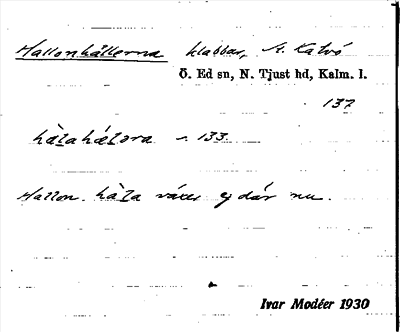 Hallonhällerna klabbar, St. Kalvö
Ö. Ed sn, N. Tjust hd, Kalm. l.
132
hàlahæ̀lǝra s. 133.
Hallon växer ej där nu.
Ivar Modéer 1930